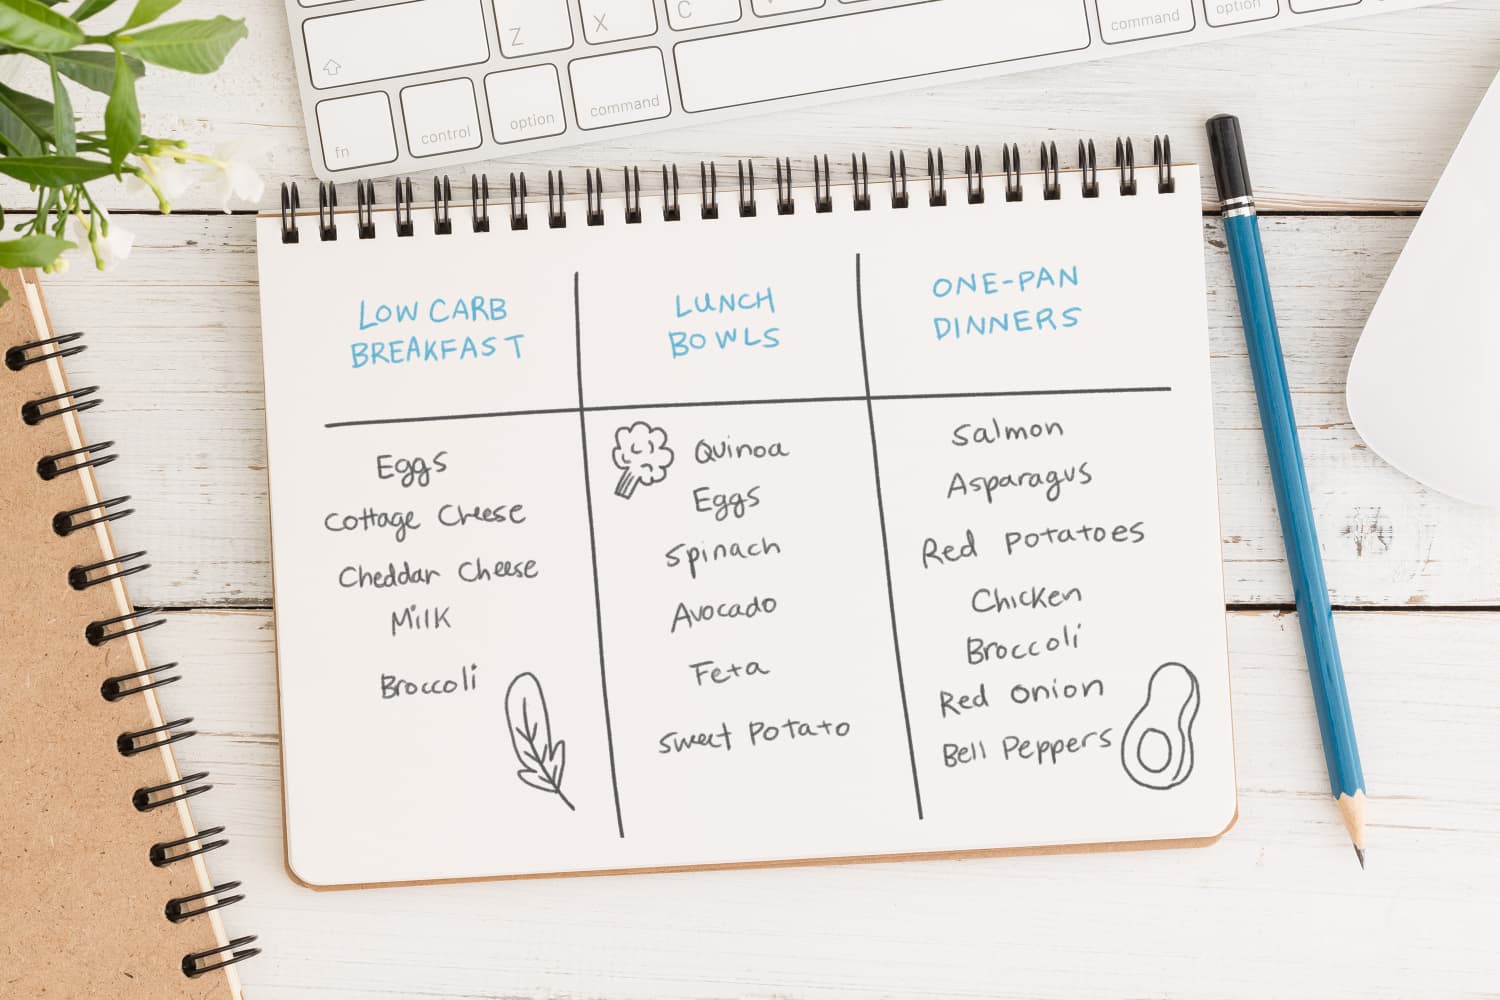 Z
X
C
command
option
fn
control
option
command
LOW CARB
BREAKFAST
LUNCH
BOWLS
ONE-PAN
DINNERS
Eggs
Cottage Cheese
Cheddar Cheese
Milk
Broccoli
Quinoa
Eggs
Spinach
Avocado
Feta
Sweet Potato
Salmon
Asparagus
Red Potatoes
Chicken
Broccoli
Red Onion
Bell Peppers